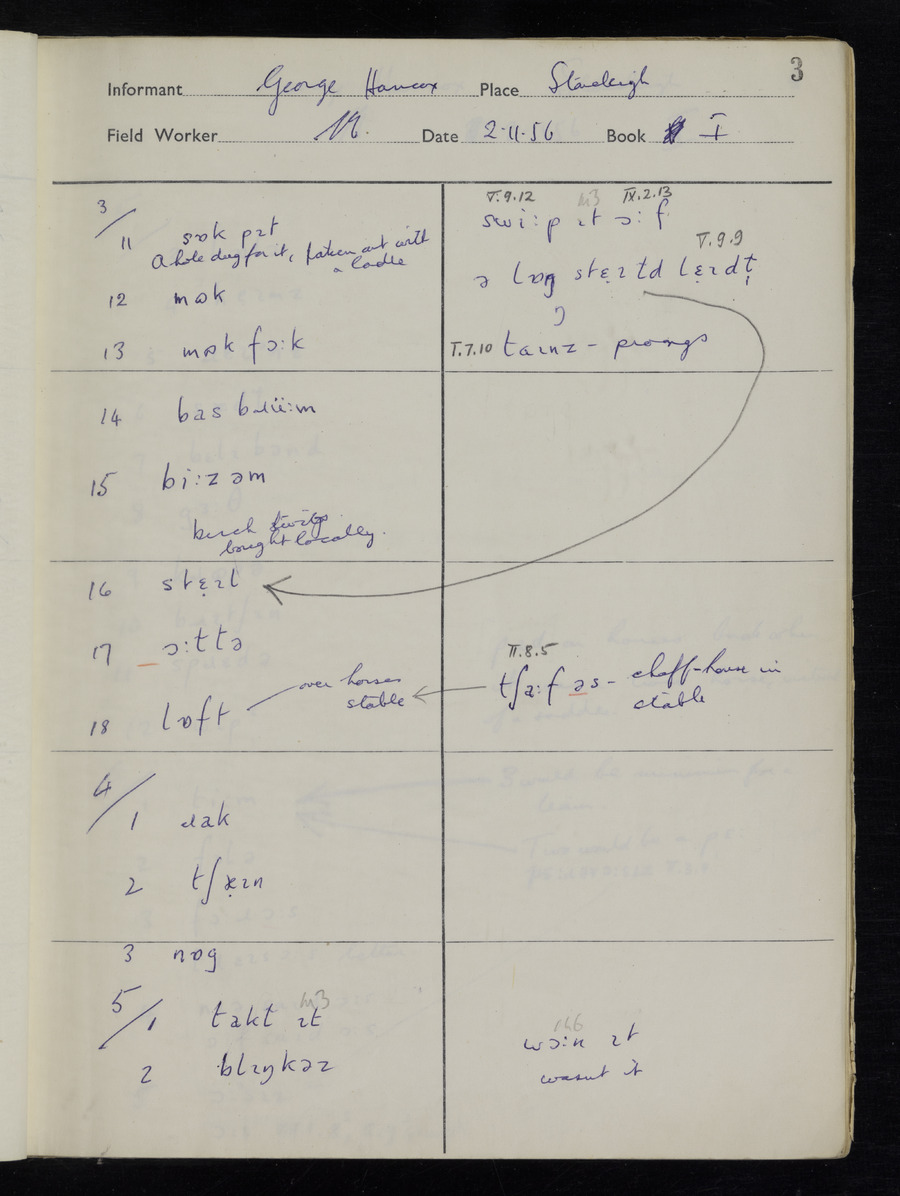 3
Informant George Hancox Place Stoneleigh
Field Worker Date 2·11·56 Book I
3/
11 sɒk pɪt
A hole dug for it, taken out with
a ladle
12 mɒk
13 mɒk fɔ:k
14 bas bɹüːm
15 bi:zəm
birch twigs
bought locally.
16 stɛ̣ɪl
17 ɔ:ttə
18 lɒft
over horses
stable
4/
1 ɹak
2 tʃæ̣ɪn
3 nɒg
5/
1 takt ɪt
M3
2 blɪŋkəz
V.9.12 M3 IX.2.13
swi:p ɪt ɔ:f
V.9.9
ə lɒŋ stɛ̣ɪtd lɛ̣ɪdḷ
V.7.10 taɪnz - prongs
II.8.5
tʃa:f əs - chaff-house in
stable
wɔ:n ɪt
wasnt it